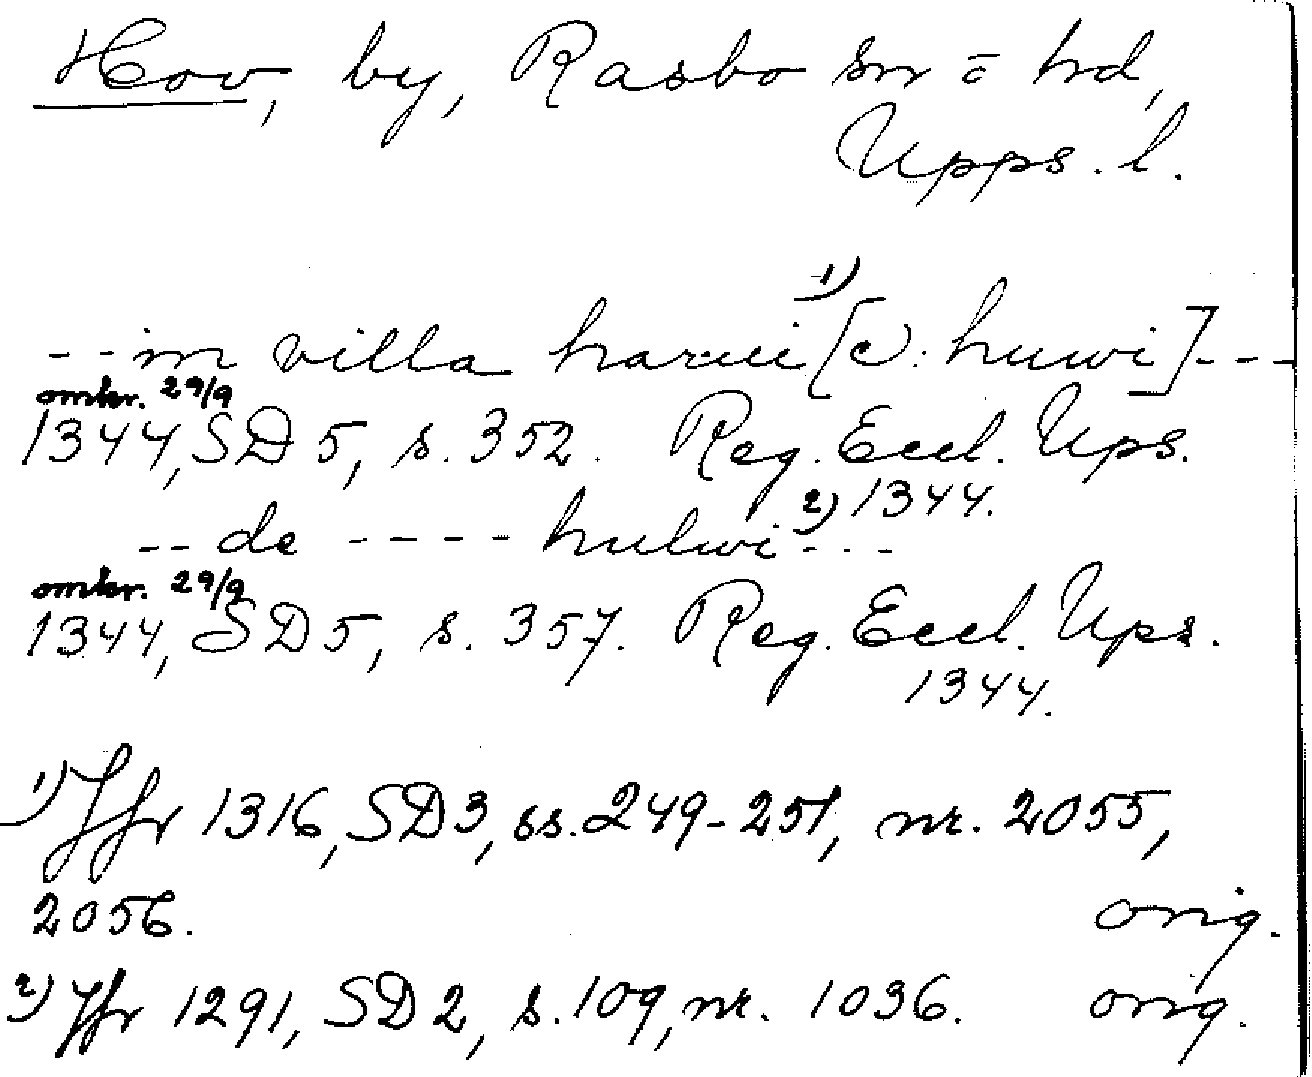 Hov, by, Rasbo sn o hd,
Upps. l.
1)
--in villa harui [c: huwi]---
omkr. 29/9
1344, SD 5, s. 352. Reg. Eccl. Ups.
1344.
--de ----hulwi 2)---
omkr. 29/9
1344, SD 5, s. 357. Reg. Eccl. Ups.
1344.
1) Jfr 1316, SD3, ss. 249-251, nr. 2055,
2056. orig.
2) Jfr 1291, SD 2, s. 109, nr. 1036. orig.